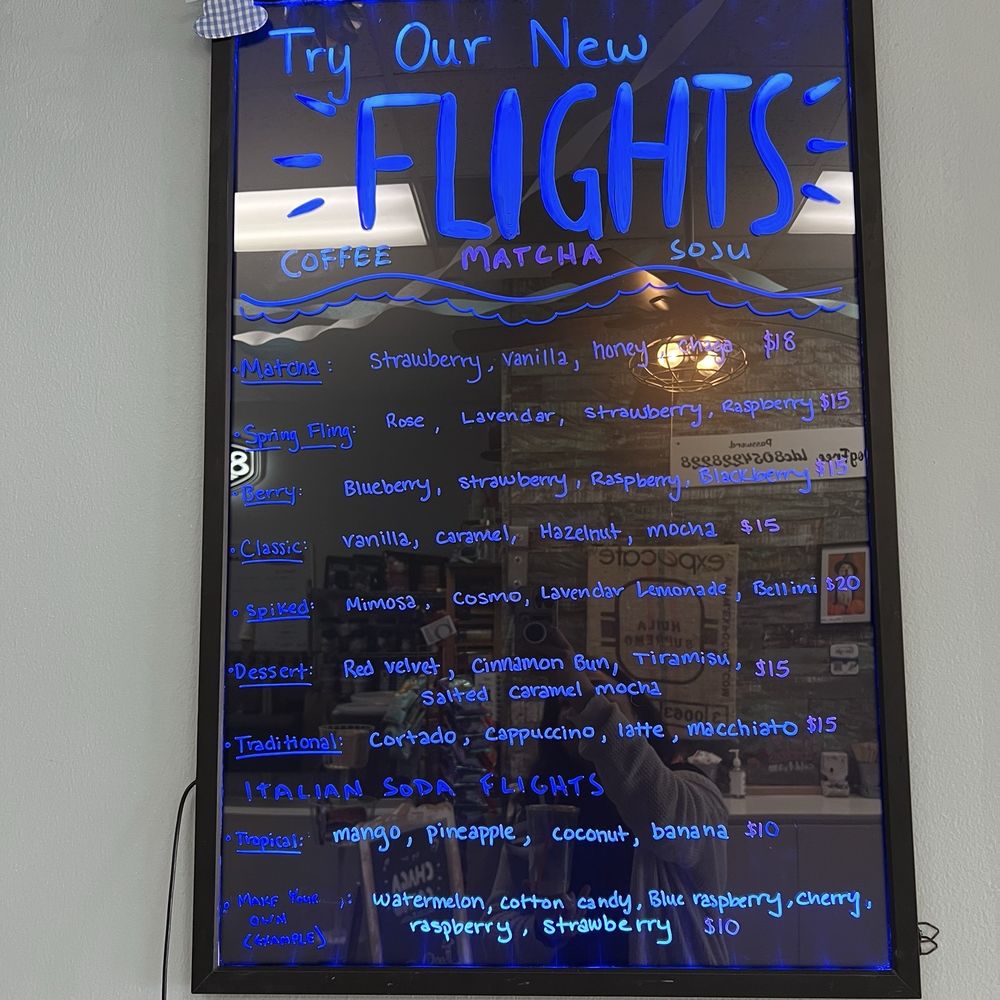 Try Our New
FLIGHTS
COFFEE MATCHA SOJU
• Matcha: Strawberry, vanilla, honey, chaga $18
• Spring Fling: Rose, Lavendar, strawberry, Raspberry $15
• Berry: Blueberry, strawberry, Raspberry, Blackberry $15
• Classic: vanilla, caramel, Hazelnut, mocha $15
• Spiked: Mimosa, Cosmo, Lavendar Lemonade, Bellini $20
• Dessert: Red velvet, Cinnamon Bun, Tiramisu, $15
Salted caramel mocha
• Traditional: Cortado, Cappuccino, latte, macchiato $15
ITALIAN SODA FLIGHTS
• Tropical: mango, pineapple, coconut, banana $10
• MAKE YOUR OWN (EXAMPLE): watermelon, cotton candy, Blue raspberry, cherry,
raspberry, strawberry $10
8
Password
expocafe
HUILA
SUPREMO
CHAGA